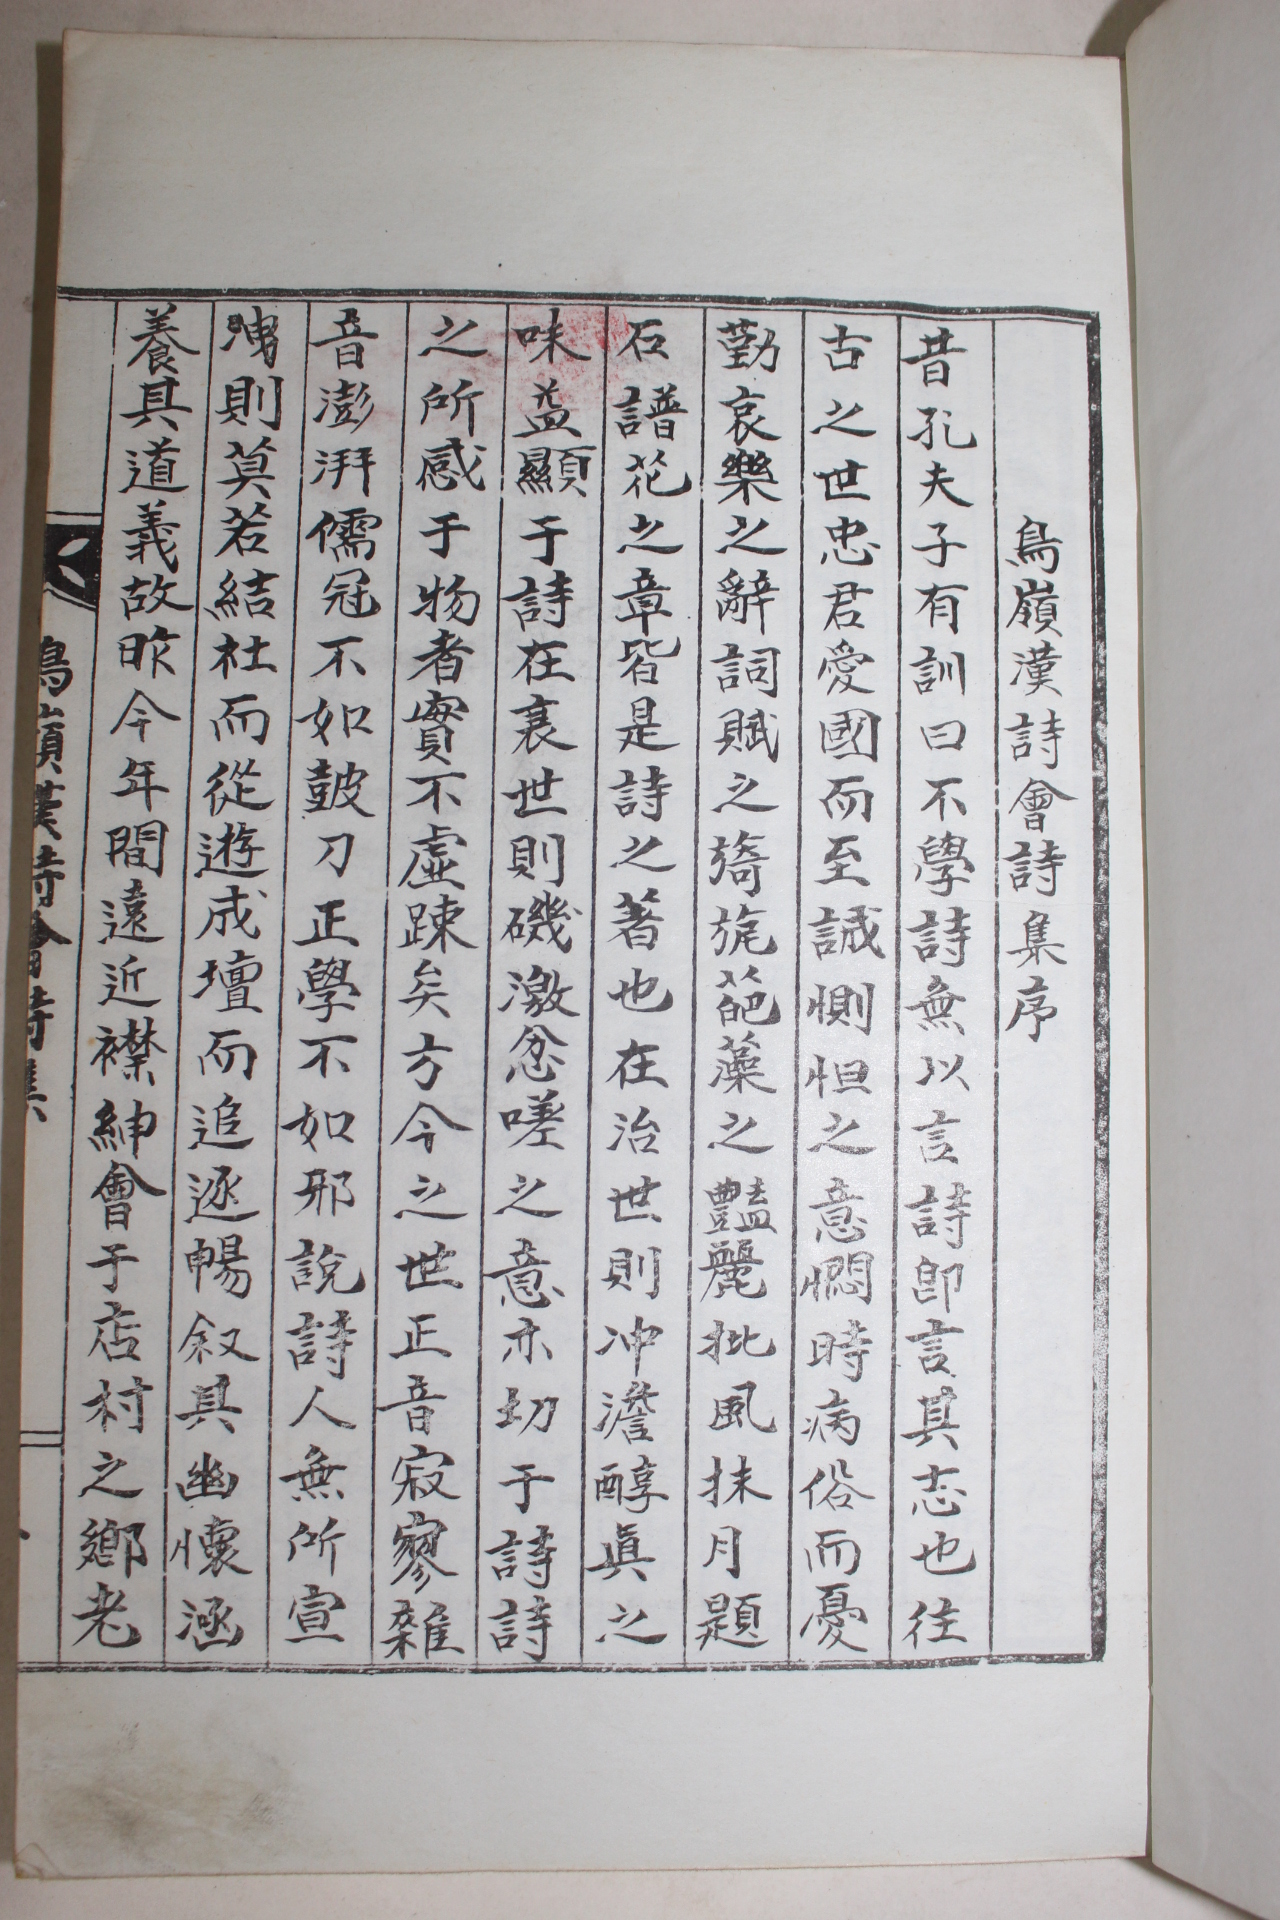 鳥嶺漢詩會詩集序
昔孔夫子有訓曰不學詩無以言詩卽言其志也往
古之世忠君愛國而至誠惻怛之意憫時病俗而憂
勤哀樂之辭詞賦之旖旎葩藻之豔麗批風抹月題
石譜花之章皆是詩之著也在治世則冲澹醇眞之
味益顯于詩在衰世則磯激忿嗟之意亦切于詩詩
之所感于物者實不虛踈矣方今之世正音寂寥雜
音澎湃儒冠不如鼓刀正學不如邪說詩人無所宣
洩則莫若結社而從遊成壇而追逐暢叙其幽懷涵
養其道義故昨今年間遠近襟紳會于店村之鄕老
鳥嶺漢詩會詩集